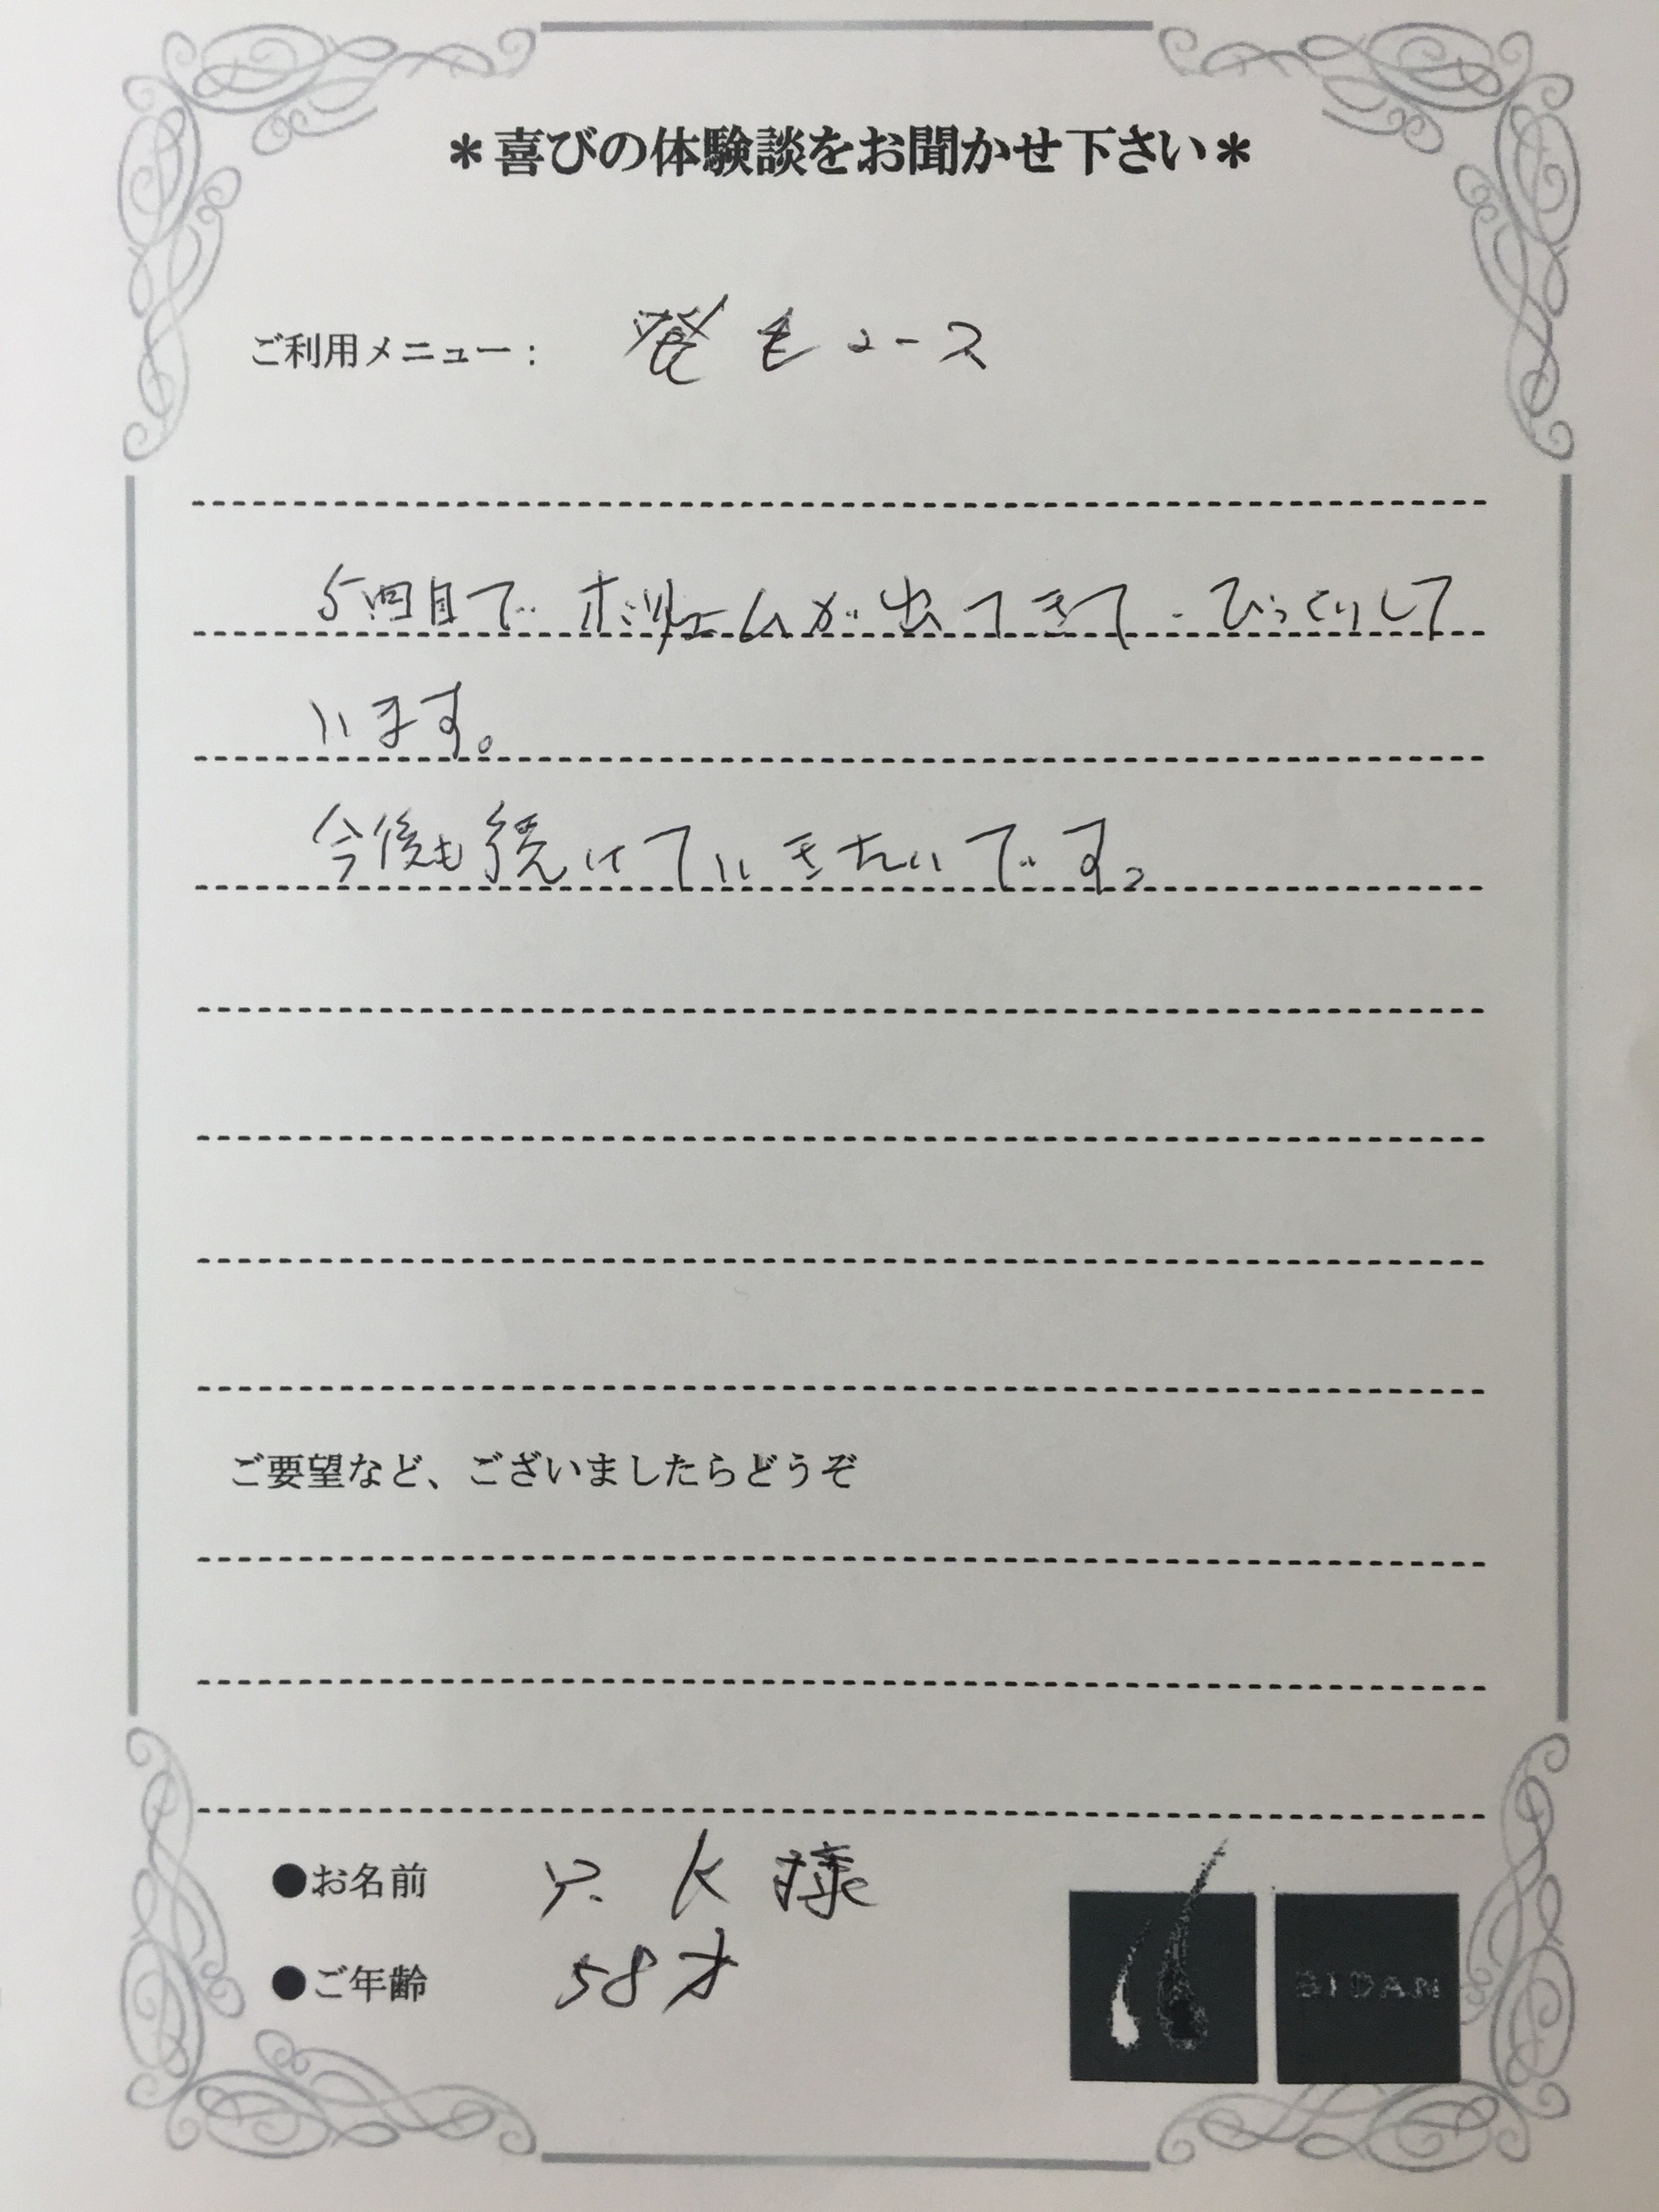 ＊喜びの体験談をお聞かせ下さい＊
ご利用メニュー： 発毛コース
5回目で ボリュームが出てきて、びっくりして
います。
今後も続けていきたいです。
ご要望など、ございましたらどうぞ
●お名前 Y. K 様
●ご年齢 58才
BIDAN